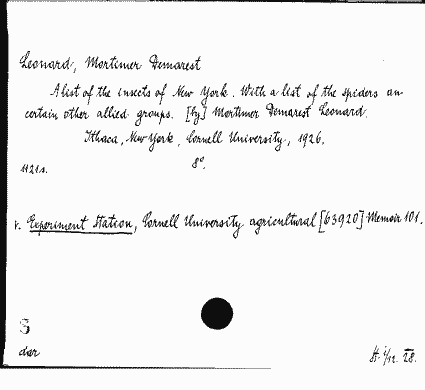 Leonard, Mortimer Demarest
A list of the insects of New York. With a list of the spiders an
certain other allied groups. [by] Mortimer Demarest Leonard.
Ithaca, New York, Cornell University, 1926.
8°.
1121s.
v. Experiment Station, Cornell University agricultural [63920] Memoir 101.
S
dar
St. 1/12. 28.